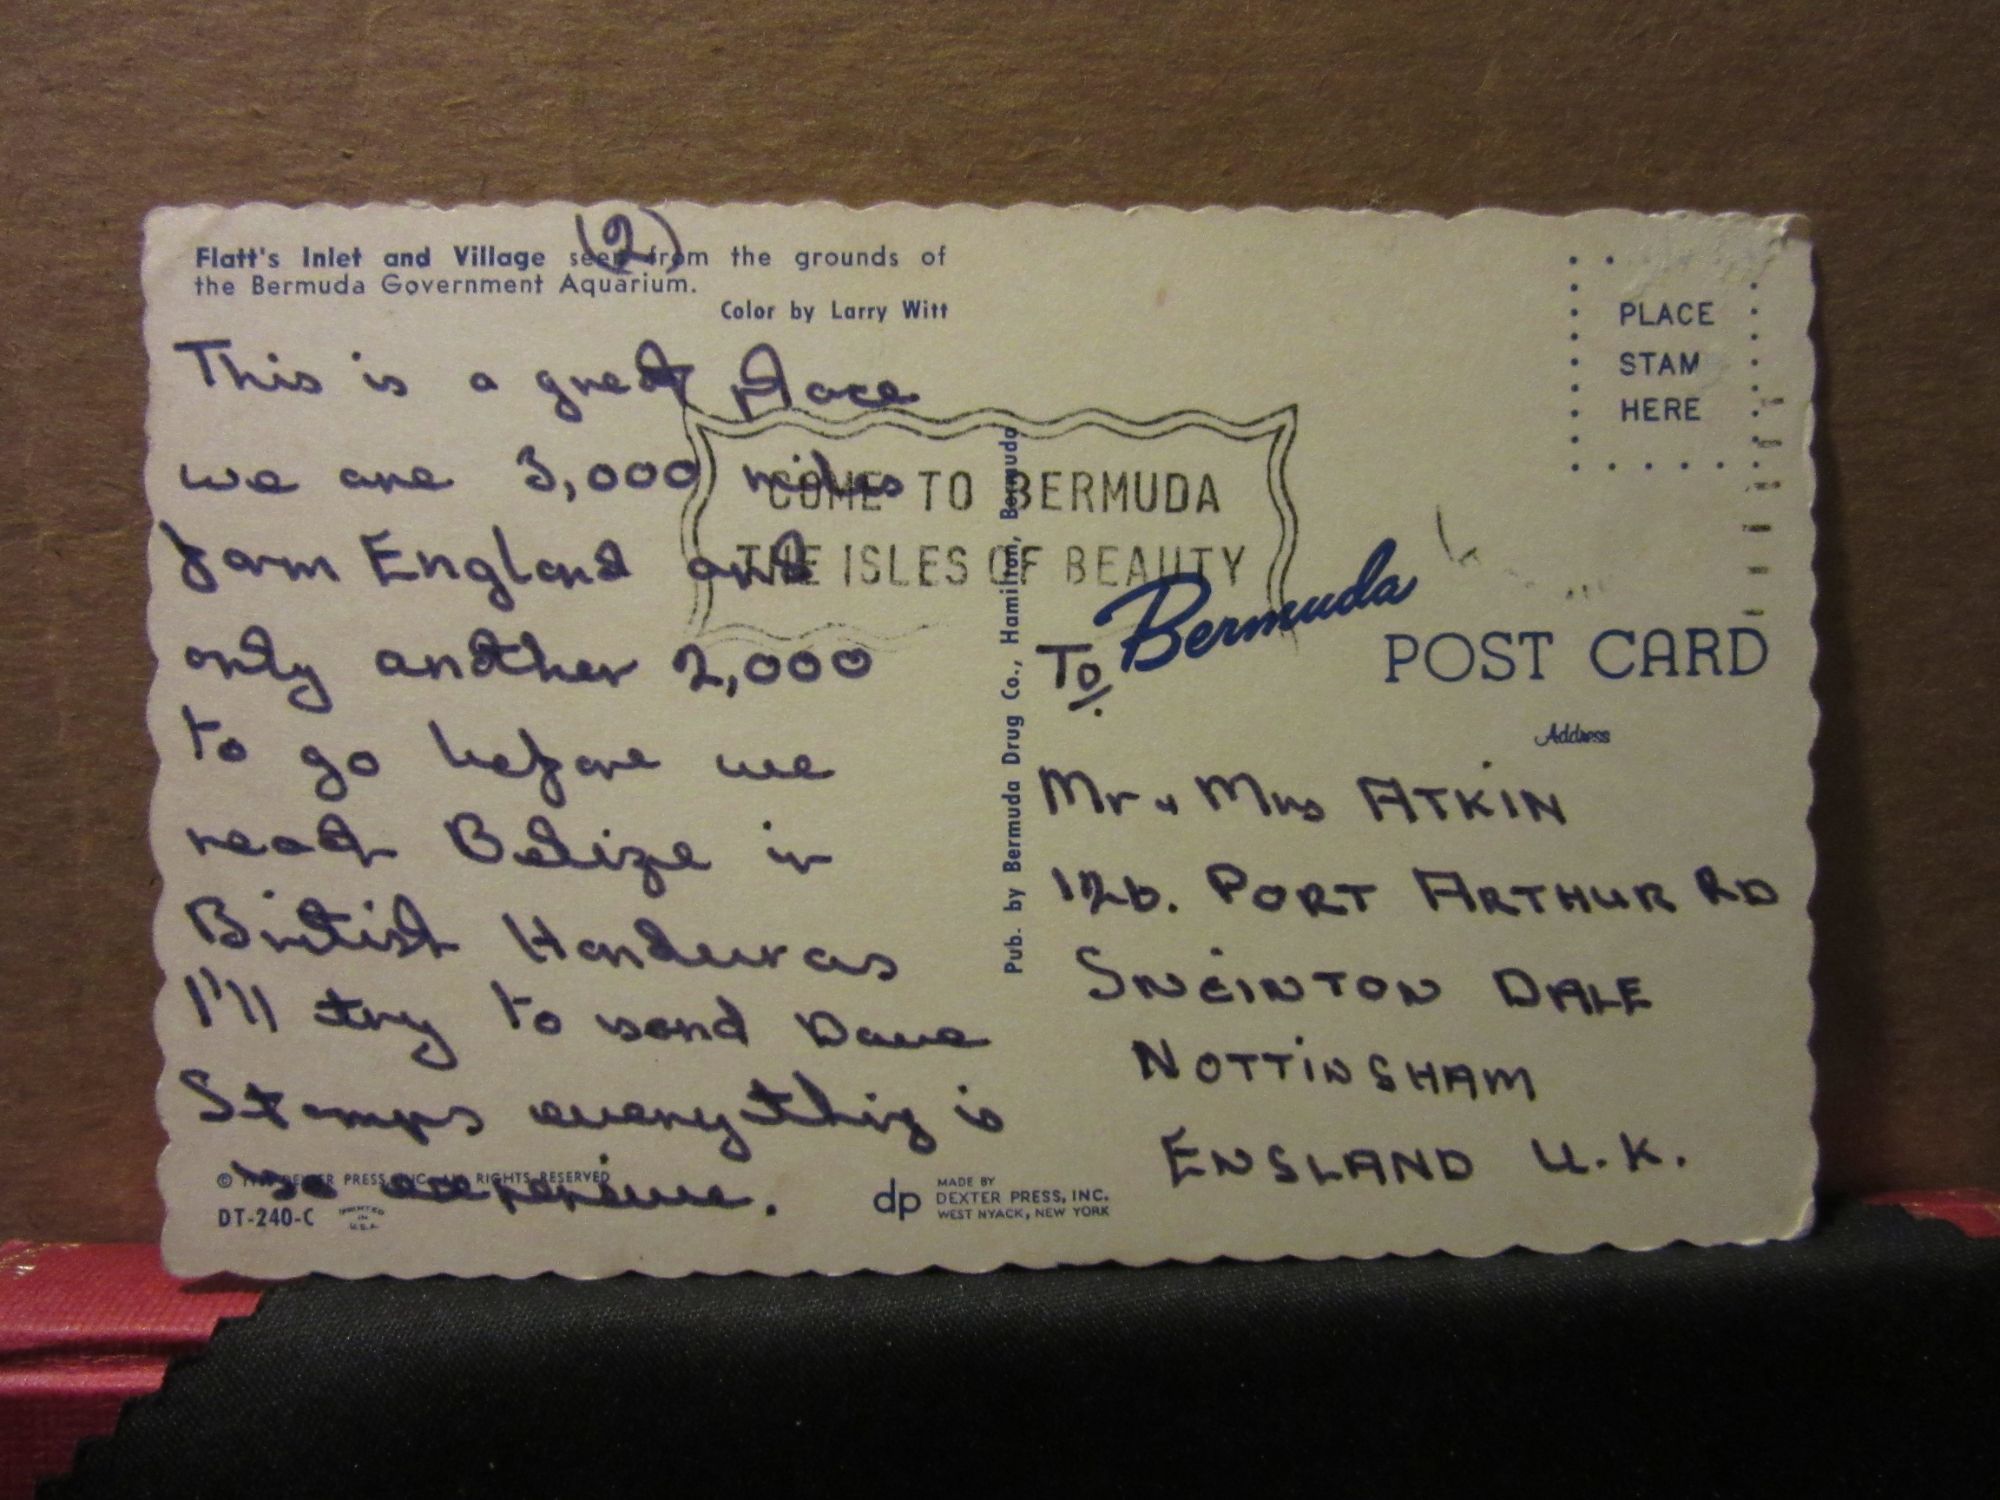 (2)
Flatt's Inlet and Village seen from the grounds of
the Bermuda Government Aquarium.
Color by Larry Witt
This is a great place
we are 3,000 miles
form England and
only another 2,000
to go before we
reach Belize in
British Honduras
I'll try to send Dave
Stamps everything is
so
© DEXTER PRESS, INC. RIGHTS RESERVED
DT-240-C
PRINTED
IN
U.S.A.
dp
MADE BY
DEXTER PRESS, INC.
WEST NYACK, NEW YORK
COME TO BERMUDA
THE ISLES OF BEAUTY
Pub. by Bermuda Drug Co., Hamilton, Bermuda
PLACE
STAM
HERE
Bermuda
POST CARD
Address
To
Mr & Mrs ATKIN
126. PORT ARTHUR RD
SNEINTON DALE
NOTTINGHAM
ENGLAND U.K.